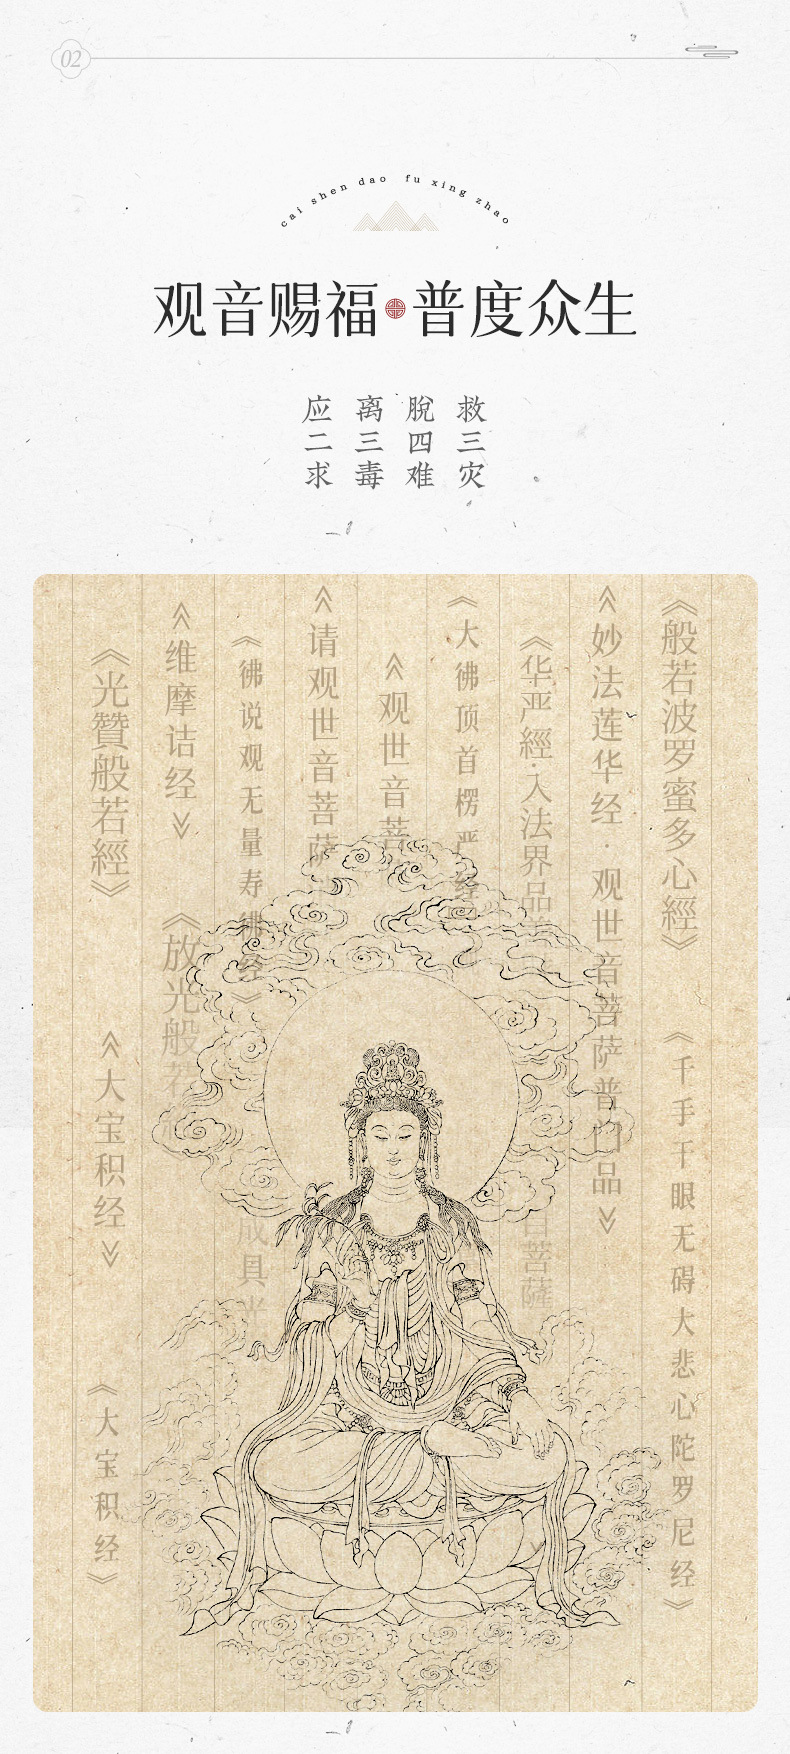 02
cai shen dao fu xing zhao
观音赐福 普度众生
救三灾
脫四难
离三毒
应二求
《般若波罗蜜多心經》
《千手千眼无碍大悲心陀罗尼经》
《妙法莲华经·观世音菩萨普门品》
《华严經·入法界品
自菩薩
《大彿顶首楞严经
《观世音菩
《请观世音菩萨
《彿说观无量寿彿经》
成具光
《维摩诘经》
《放光般若
《光贊般若經》
《大宝积经》
《大宝积经》